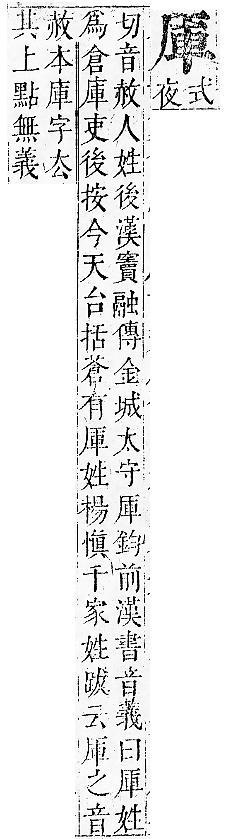 厙
式
夜
切音赦人姓後漢竇融傳金城太守厙鈞前漢書音義曰厙姓
爲倉庫吏後按今天台括蒼有厙姓楊愼千家姓跋云厙之音
赦本庫字厺
其上點無義